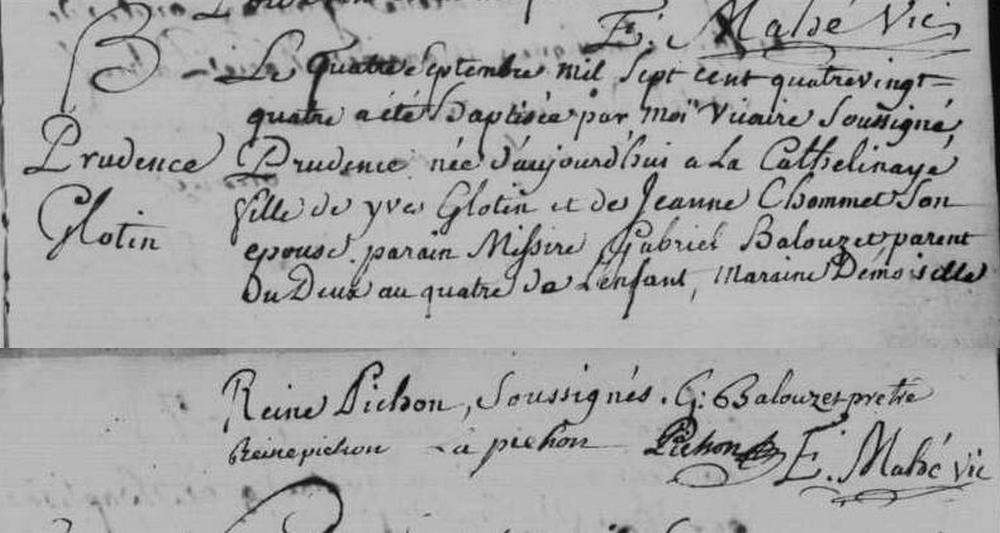 E. Mahé Vic
B
Le quatre Septembre mil Sept cent quatrevingt=
quatre a été Baptisée par moi Vicaire Soussigné,
Prudence Prudence née d'aujourd'hui a La Cathelinaye
Glotin fille de yves Glotin et de Jeanne Chommet Son
epouse. parain Missire Gabriel Balouzet parent
du Deux au quatre de L'enfant, maraine Demoiselle
Reine Pichon, Soussignés. G: Balouzet pretre
Reine pichon a pichon Pichon E. Mahé vic